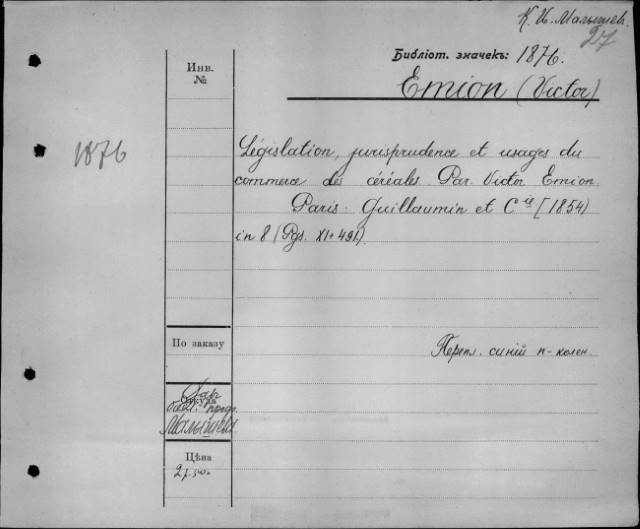 К. И. Малышев.
27
Библіот. значекъ: 1876.
Emion (Victor)
Инв.
№
1876
Législation, jurisprudence et usages du
commerce des céréales. Par Victor Emion.
Paris. Guillaumin et Cie [1854)
in 8 (Pgs. XI+491).
По заказу
Перепл. синій п-колен.
Откуда
Дар
проф.
Малышева
Цѣна
2 р.